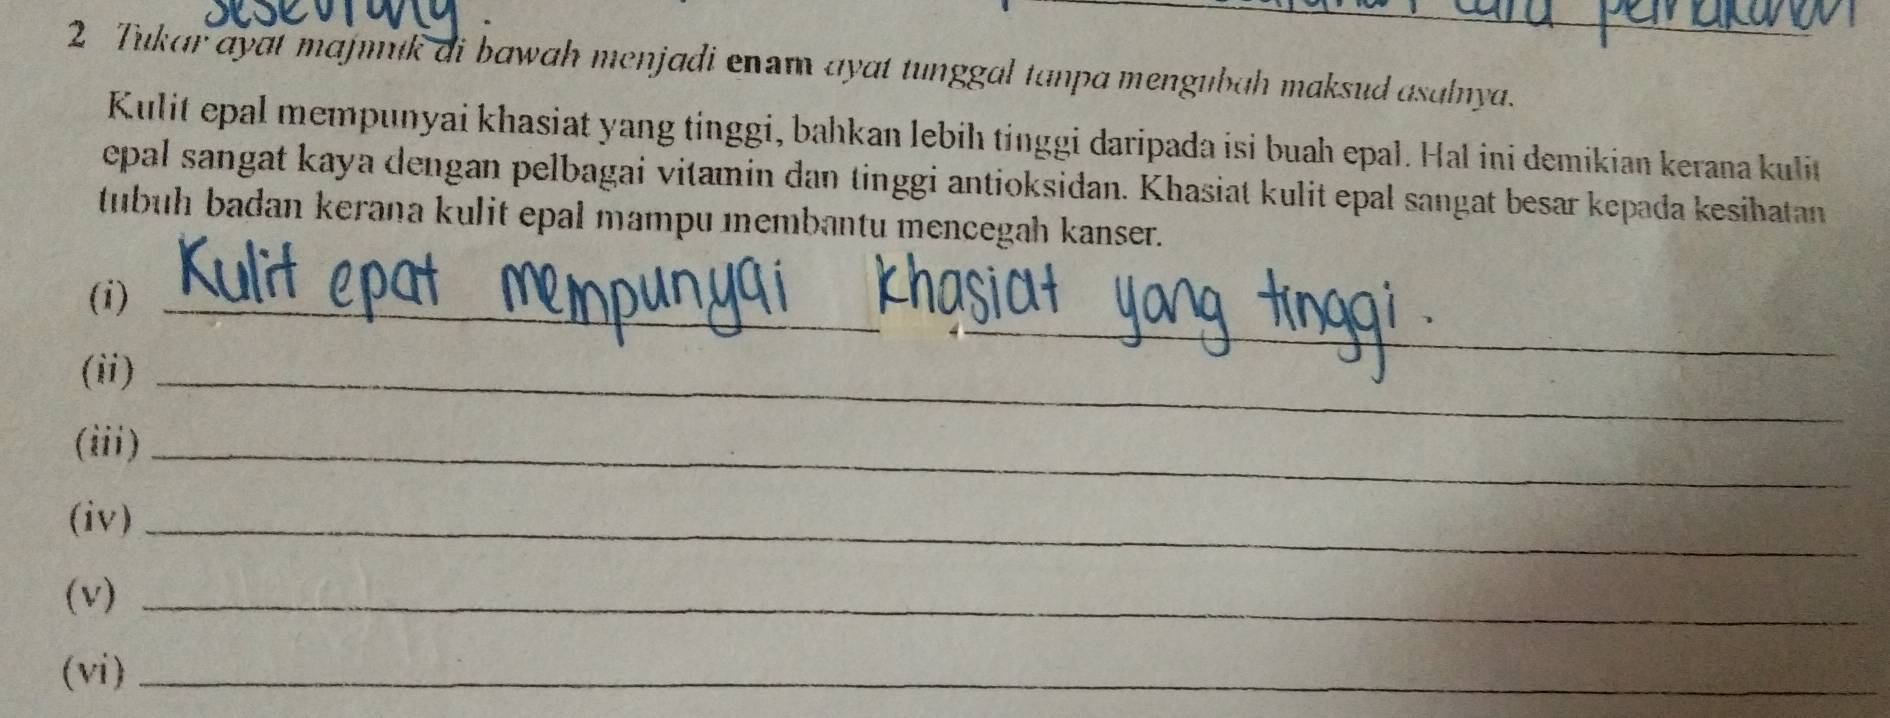 sesuruny.
cara pemakanan
2 Tukar ayat majmuk di bawah menjadi enam ayat tunggal tanpa mengubah maksud asalnya.
Kulit epal mempunyai khasiat yang tinggi, bahkan lebih tinggi daripada isi buah epal. Hal ini demikian kerana kulit
epal sangat kaya dengan pelbagai vitamin dan tinggi antioksidan. Khasiat kulit epal sangat besar kepada kesihatan
tubuh badan kerana kulit epal mampu membantu mencegah kanser.
(i) Kulit epat mempunyai khasiat yang tinggi.
(ii)
(iii)
(iv)
(v)
(vi)